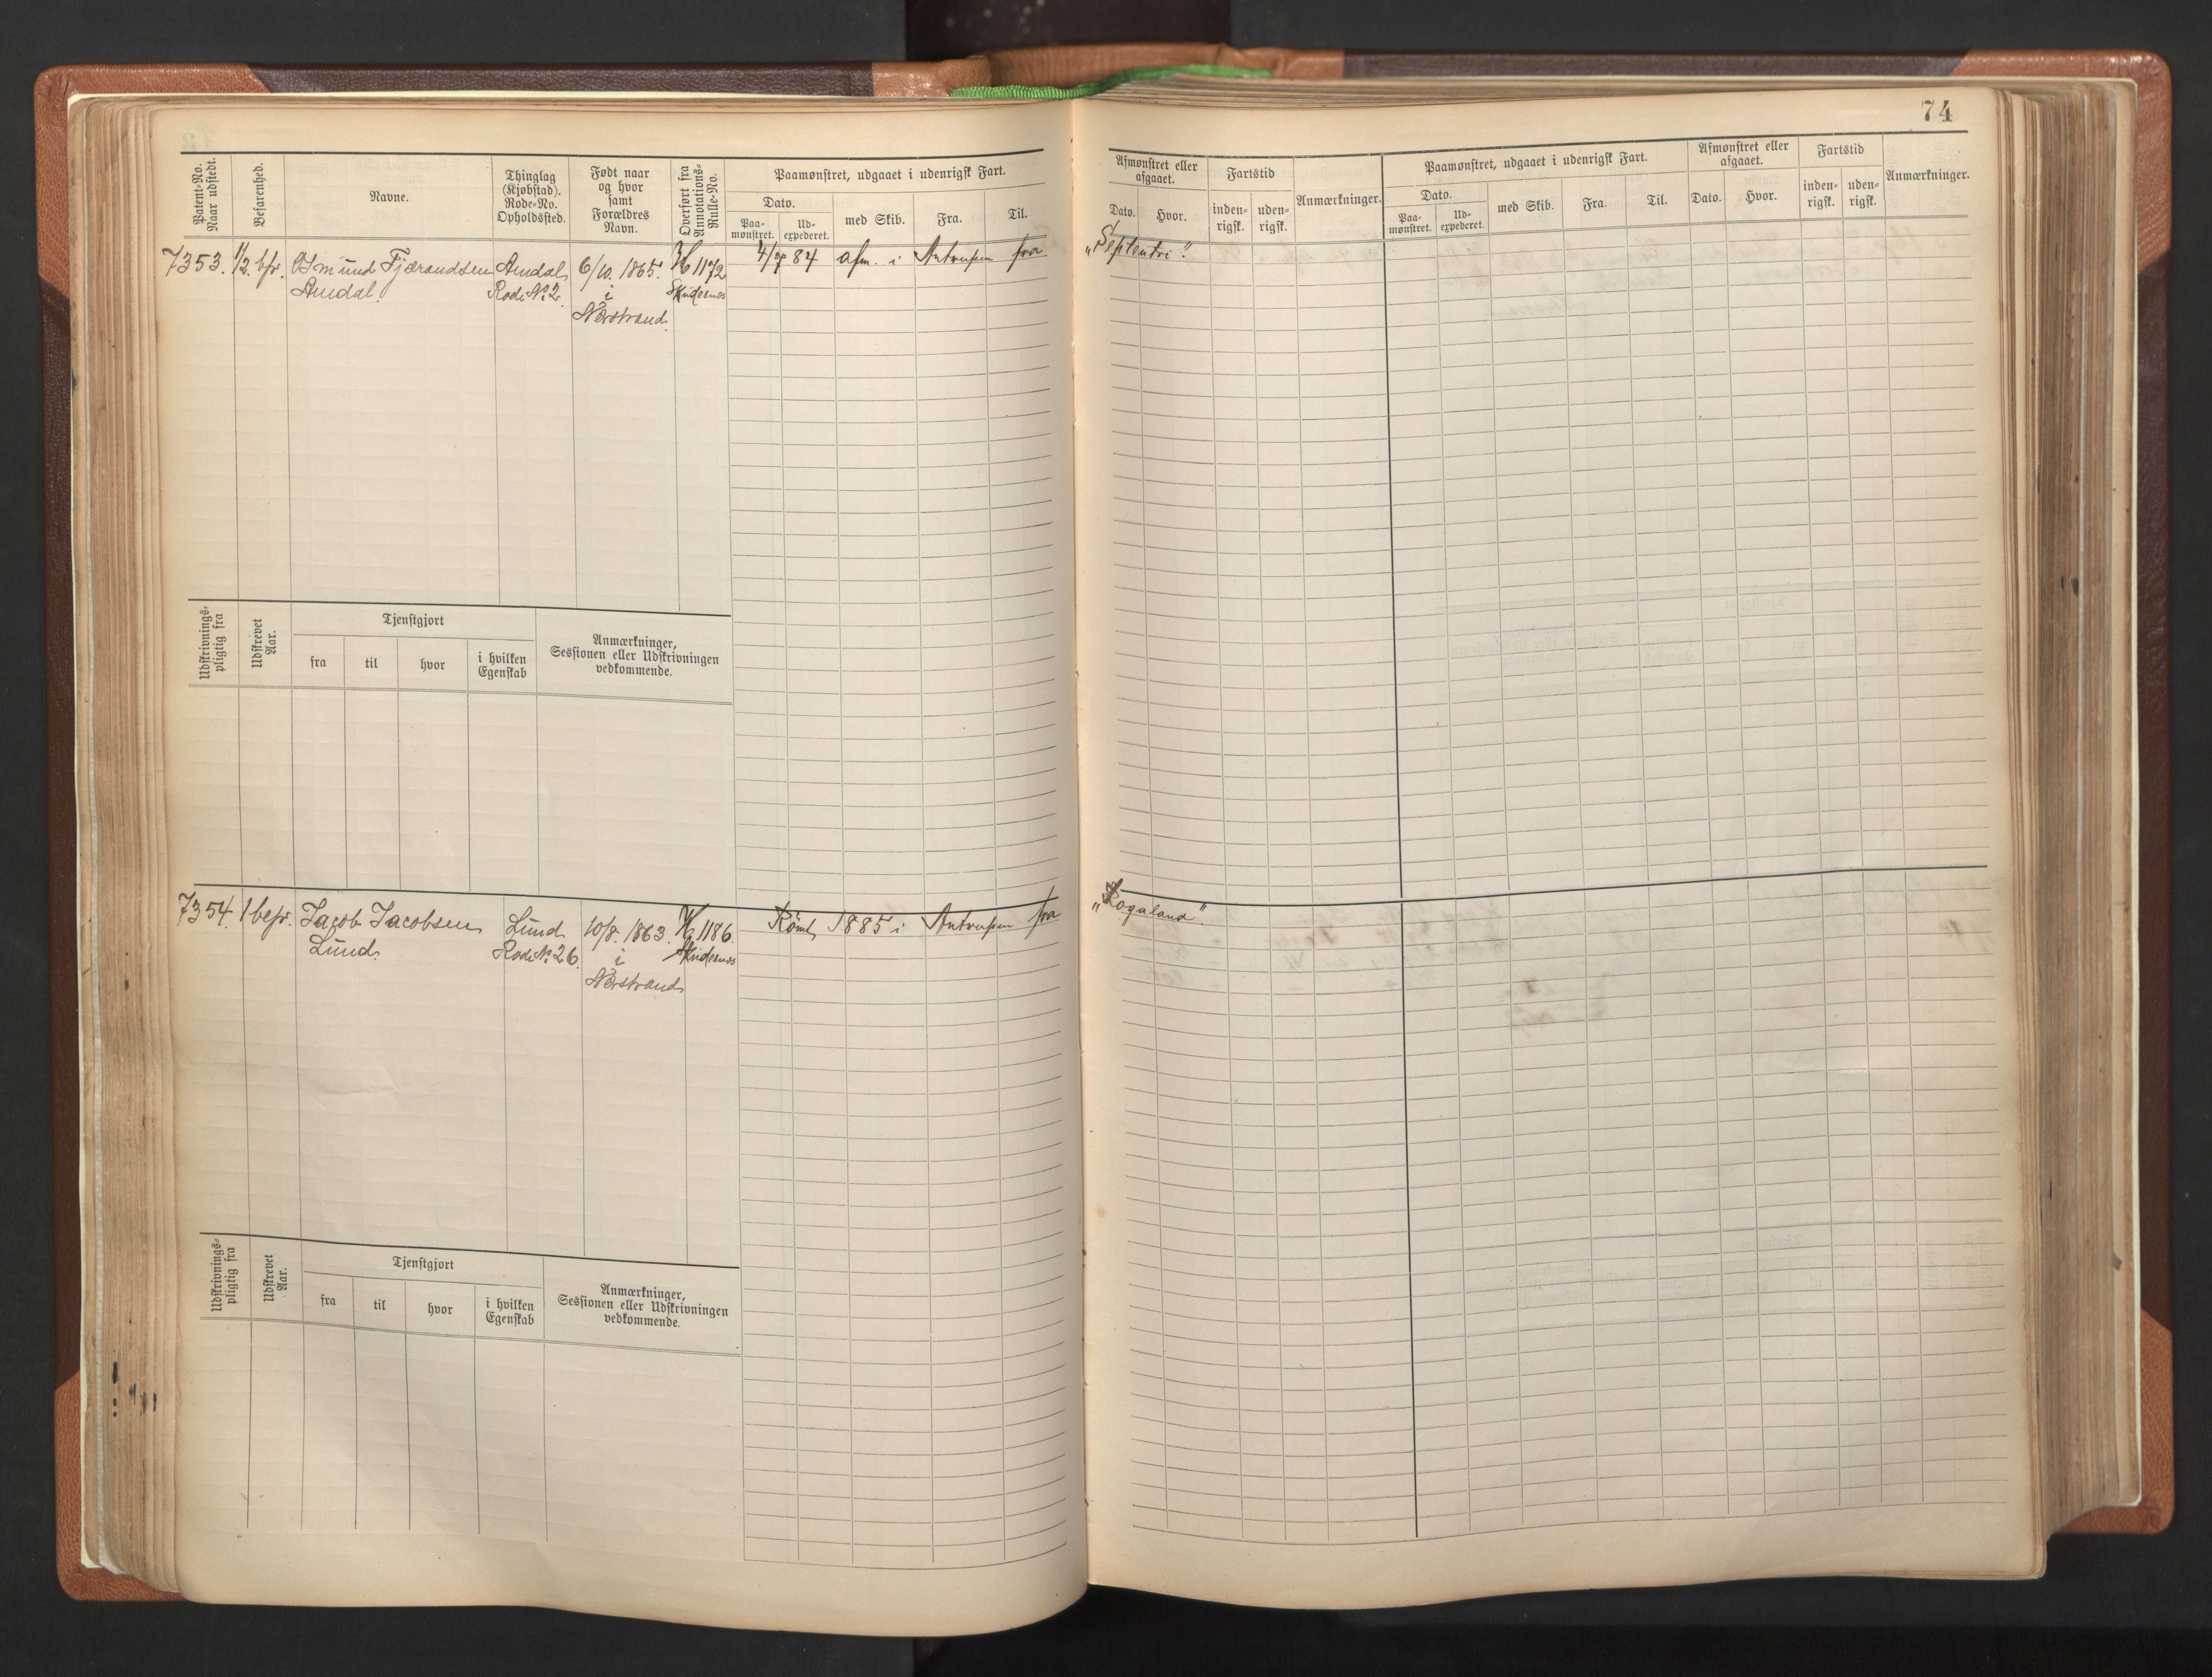 74
Patent-No. Naar udstedt.
Befarenhed.
Navne.
Thinglag (Kjøbstad). Rode-No. Opholdssted.
Født naar og hvor samt Forældres Navn.
Overført fra Annotations-Rulle-No.
Paamønstret, udgaaet i udenrigsk Fart.
Dato.
Paa-mønstret.
Ud-expederet.
med Skib.
Fra.
Til.
Afmønstret eller afgaaet.
Dato.
Hvor.
Fartstid
inden-rigsk.
uden-rigsk.
Anmærkninger.
Paamønstret, udgaaet i udenrigsk Fart.
Dato.
Paa-mønstret.
Ud-expederet.
med Skib.
Fra.
Til.
Afmønstret eller afgaaet.
Dato.
Hvor.
Fartstid
inden-rigsk.
uden-rigsk.
Anmærkninger.
7353. 1/2 bfr. Osmund Fjærandsen Amdal 6/10. 1865. H 1172 84 afm. i Antverpen fra „Septentri"
Amdal. Rode No 2. i Skudesnes
Nerstrand.
Udskrivnings-pligtig fra
Udskrevet Aar.
Tjenstgjort
fra
til
hvor
i hvilken Egenskab
Anmærkninger,
Sessionen eller Udskrivningen
vedkommende.
7354. 1 befr. Jacob Jacobsen Lund 10/8. 1863. H 1186. Rømt 1885 i Antverpen fra „Rogaland"
Lund. Rode No 26. i Skudesnes
Nerstrand
Udskrivnings-pligtig fra
Udskrevet Aar.
Tjenstgjort
fra
til
hvor
i hvilken Egenskab
Anmærkninger,
Sessionen eller Udskrivningen
vedkommende.